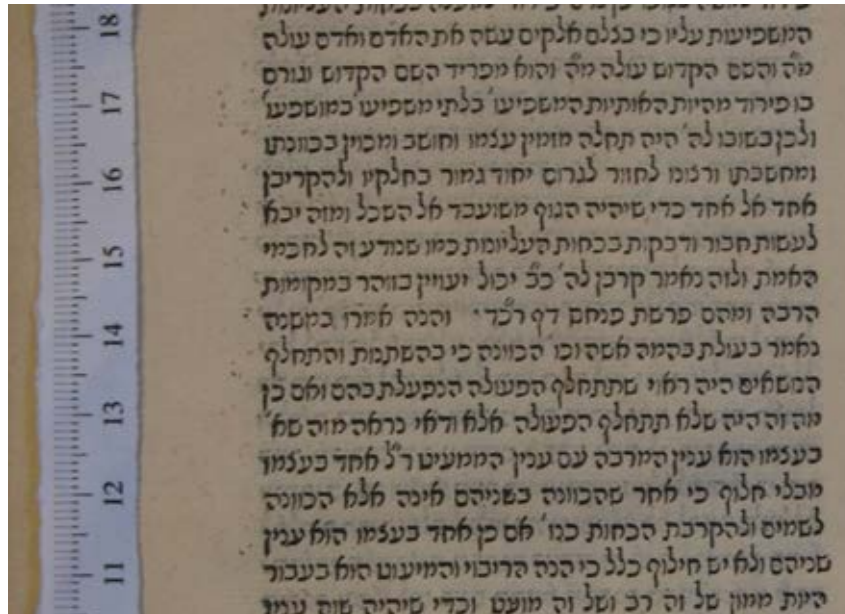 המשפיעות עליו כי בצלם אלקים עשה את האדם ואדם עולה
מ״ה והשם הקדוש עולה מ״ה והוא מפריד השם הקדוש וגורם
בו פירוד מהיות האותיות המשפיעו׳ בלתי משפיעו׳ במושפעו׳
ולכן בשובו לה׳ היה תחלה מזמין עצמו וחושב ומכוין בכוונתו
ומחשבתו ורצונו לחזור לגרום יחוד גמור בחלקיו ולהקריבן
אחד אל אחד כדי שיהיה הגוף משועבד אל השכל ומזה יבא
לעשות חבור ודבקות בכחות העליונות כמו שנודע זה לחכמי
האמת ולזה נאמר קרבן לה׳ כ״ב יכול יעויין בזוהר במקומות
הרבה ומהם פרשת פנחם דף ר״כד׳ והנה אמרו במשנה
נאמר בעולת בהמה אשה וכו׳ הכוונה כי בהשתנות והתחלף
הנושאים היה ראוי שתתחלף הפעולה הנפעלת בהם ואם כן
מה זה היה שלא תתחלף הפעולה אלא ודאי נראה מזה שא׳
בעצמו הוא ענין המרבה עם ענין הממעיט ר״ל אחד בעצמו
מבלי חלוף כי אחר שהכוונה בשניהם אינה אלא הכוונה
לשמים ולהקרבת הכחות כנז׳ אם כן אחד בעצמו הוא ענין
שניהם ולא יש חילוף כלל כי הנה הריבוי והמיעוט הוא בעבור
היות ממון של זה רב ושל זה מועט וכדי שיהיה שוה עני
18
17
16
15
14
13
12
11